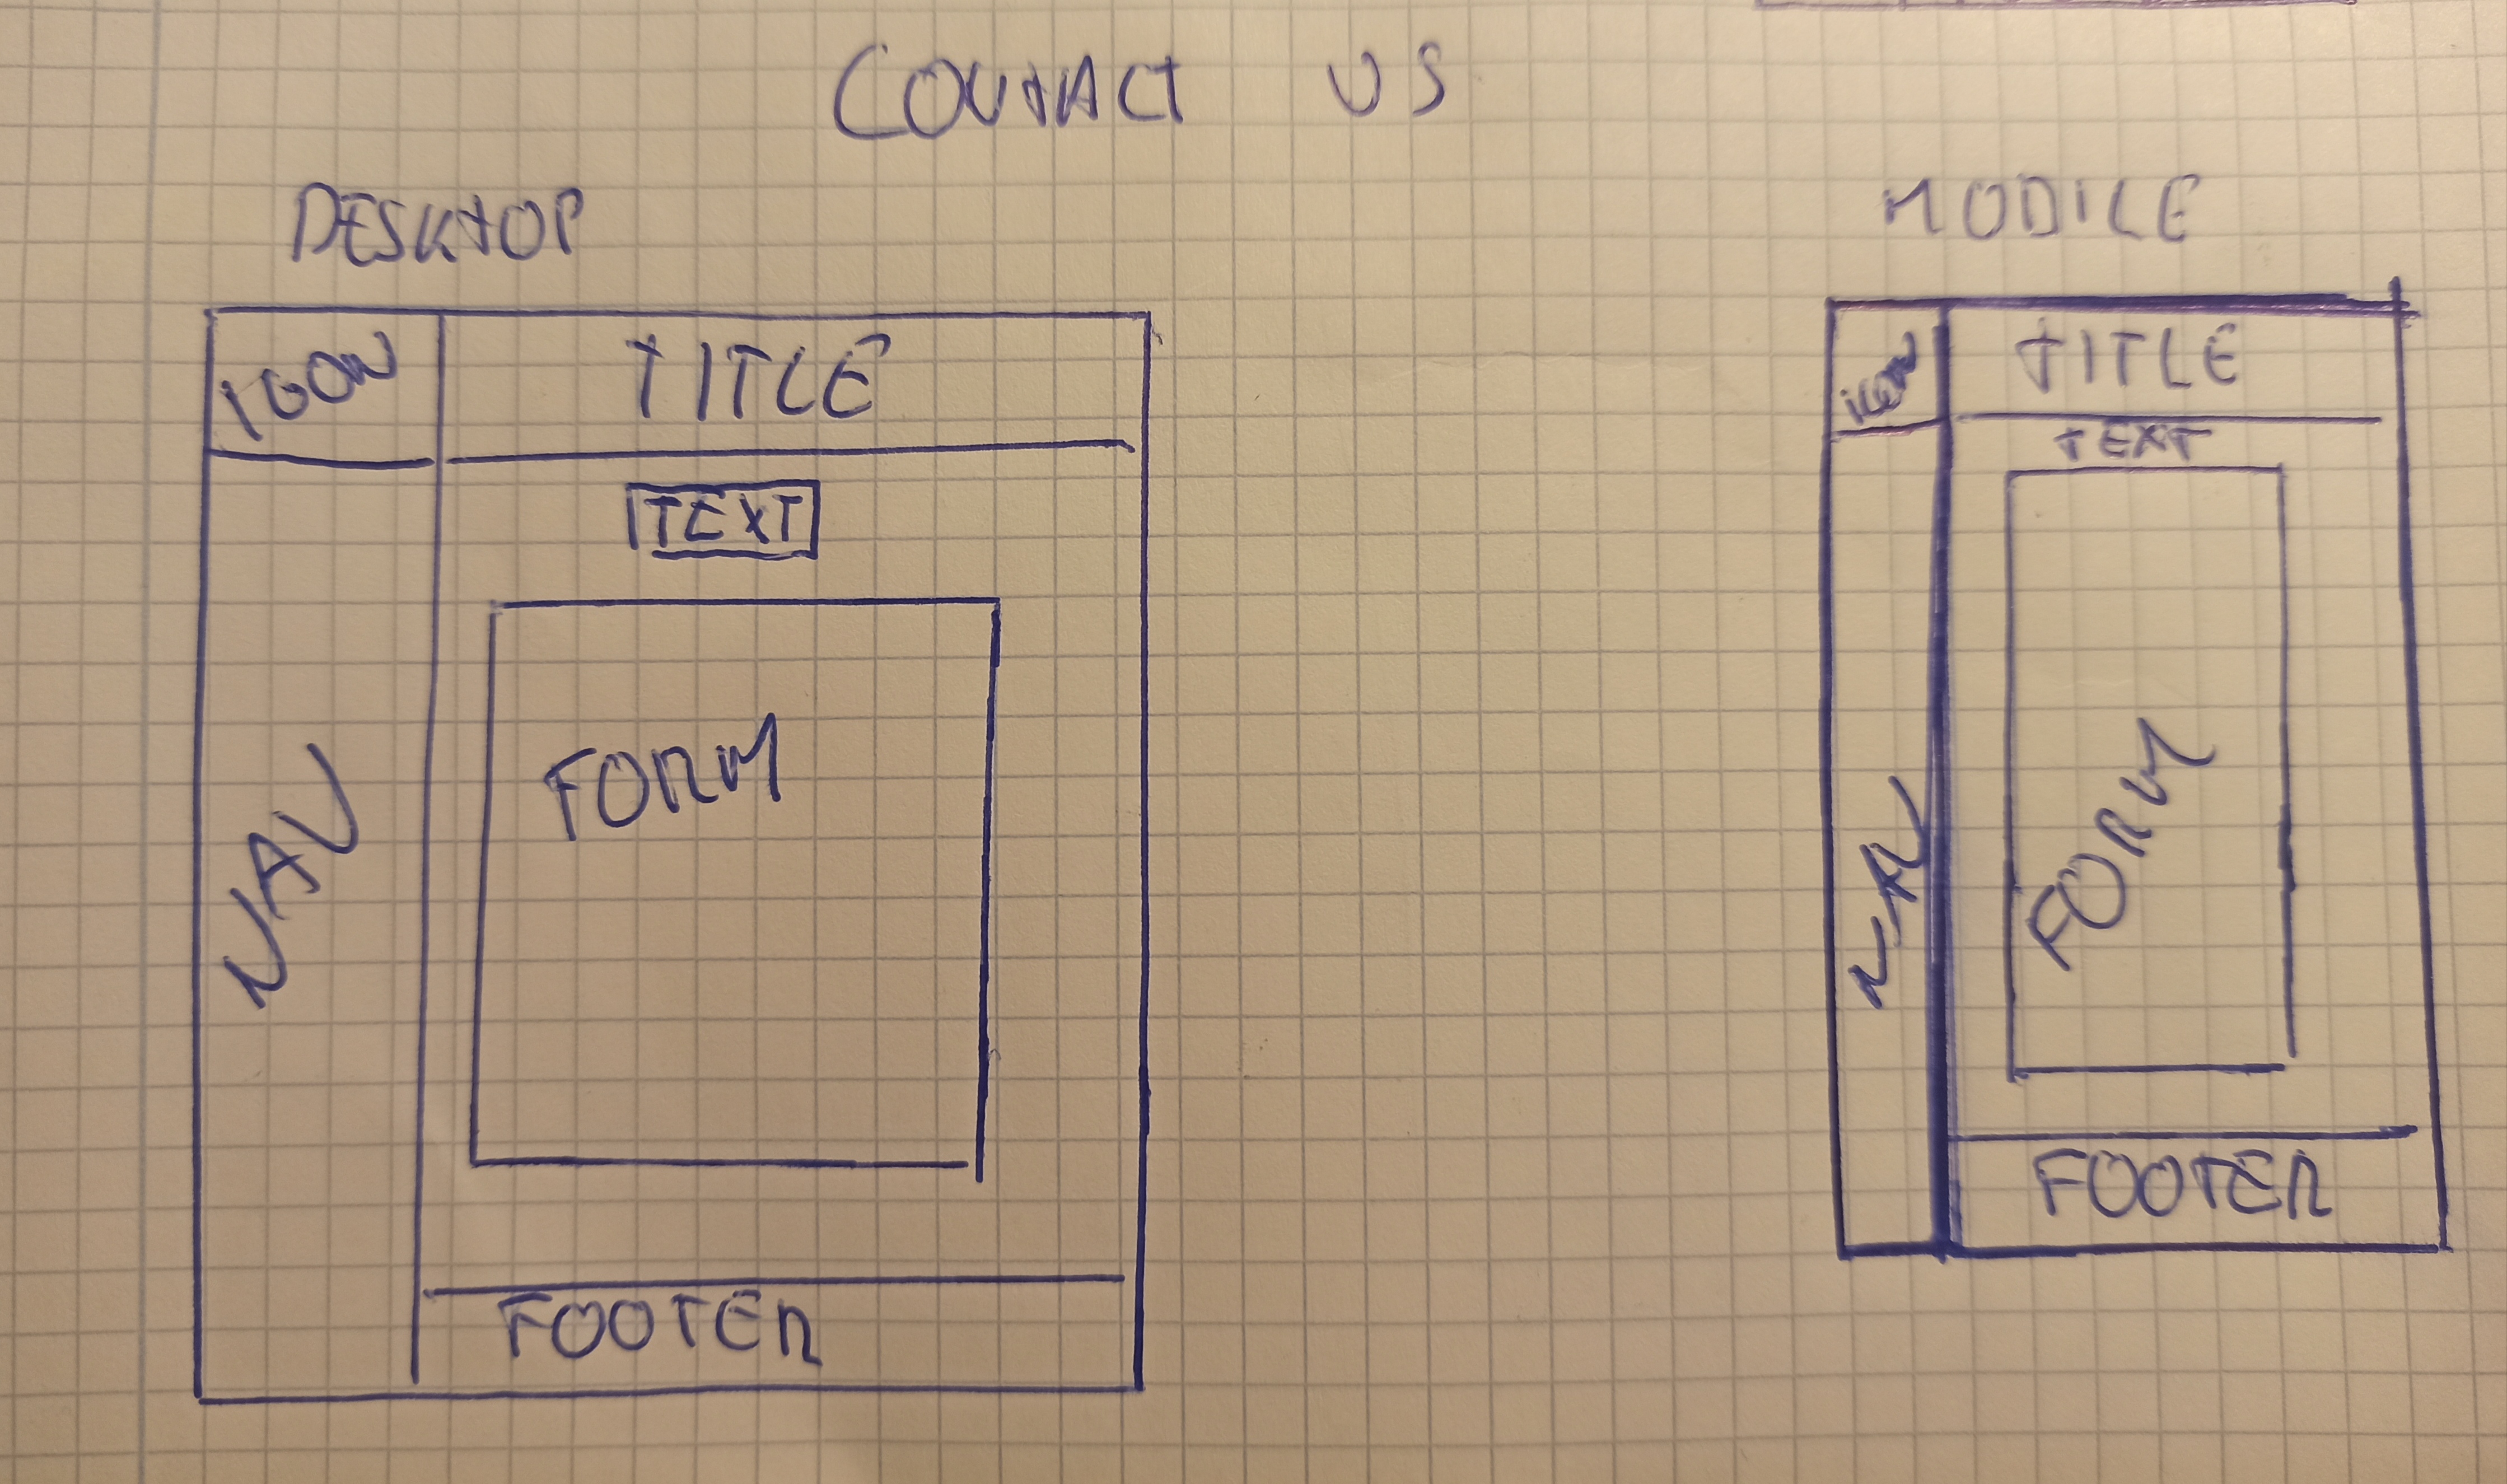 CONTACT US
DESKTOP
ICON
TITLE
TEXT
FORM
NAV
FOOTER
MOBILE
icon
TITLE
TEXT
FORM
NAV
FOOTER